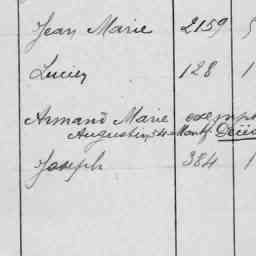 Jean Marie 2159 5
Lucien 128 1
Armand Marie exempt
Augustin, 54 Montf. Décéd
Joseph 384 1